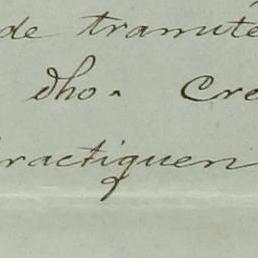 de tramite
dho. Cre
ractiquen